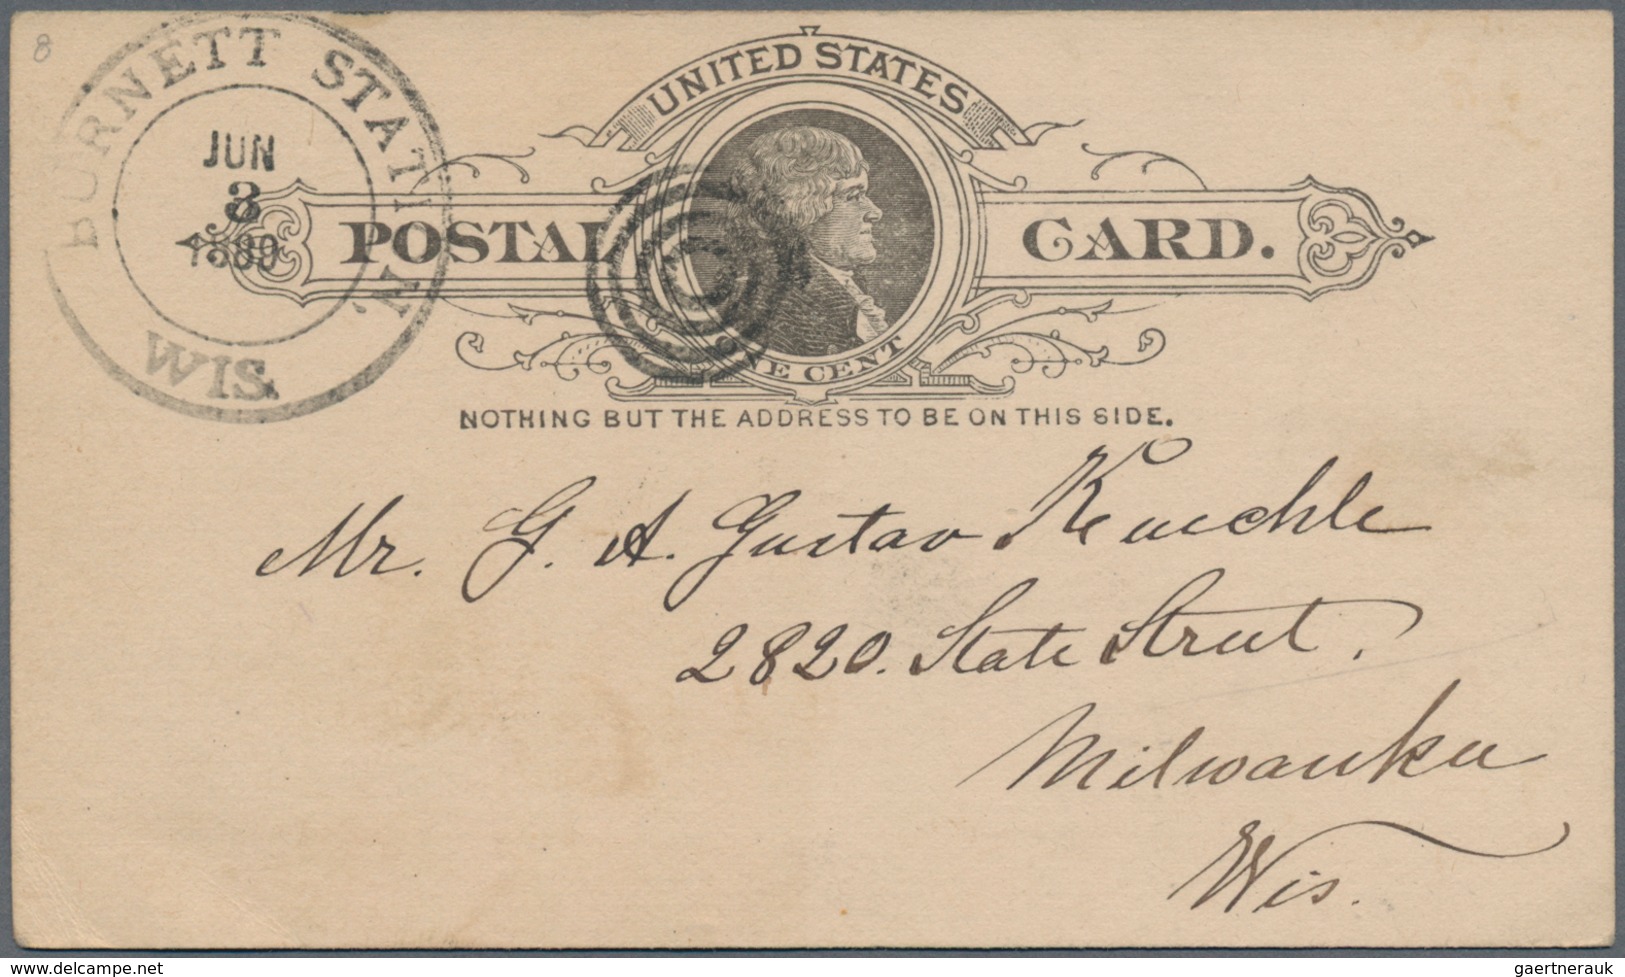 8
BURNETT STATI'N.
JUN
3
1889
WIS.
UNITED STATES
POSTAL CARD.
ONE CENT
NOTHING BUT THE ADDRESS TO BE ON THIS SIDE.
Mr. G. A. Gustav Kuechle
2820. State Street.
Milwaukee
Wis.
www.delcampe.net
gaertnerauk